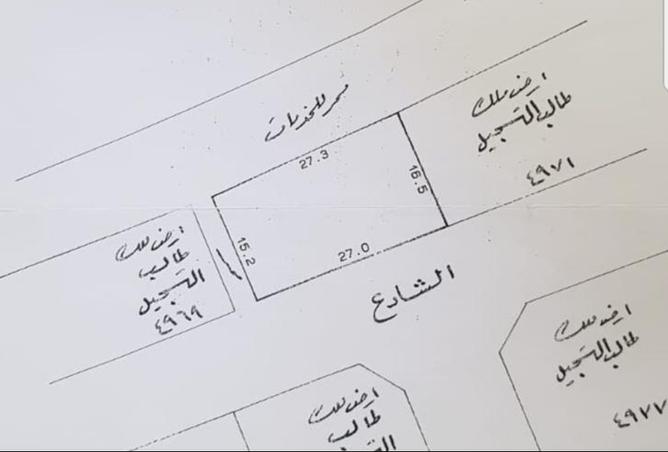 ممر للخدمات
27.3
16.5
15.2
27.0
ارض ملك
طالب التسجيل
٤٩٧١
ارض ملك
طالب
التسجيل
٤٩٦٩
الشارع
ارض ملك
طالب التسجيل
٤٩٧٧
ارض ملك
طالب